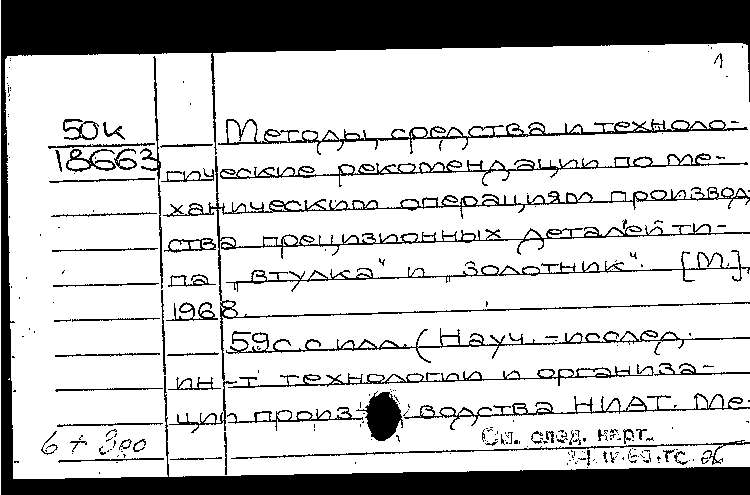 1
50к
18663
Методы, средства и техноло-
гические рекомендации по ме-
ханическим операциям производ,
ства прецизионных деталей ти-
па „втулка“ и „золотник“. [М.],
1968.
59с.с илл. (Науч.-исслед.
ин-т технологии и организа-
ции произ- водства НИАТ. Ме-
См. след. карт.
6 +